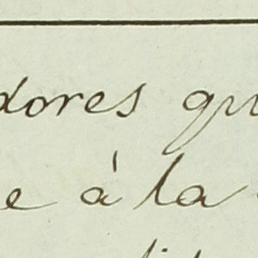 dores qu
e á la